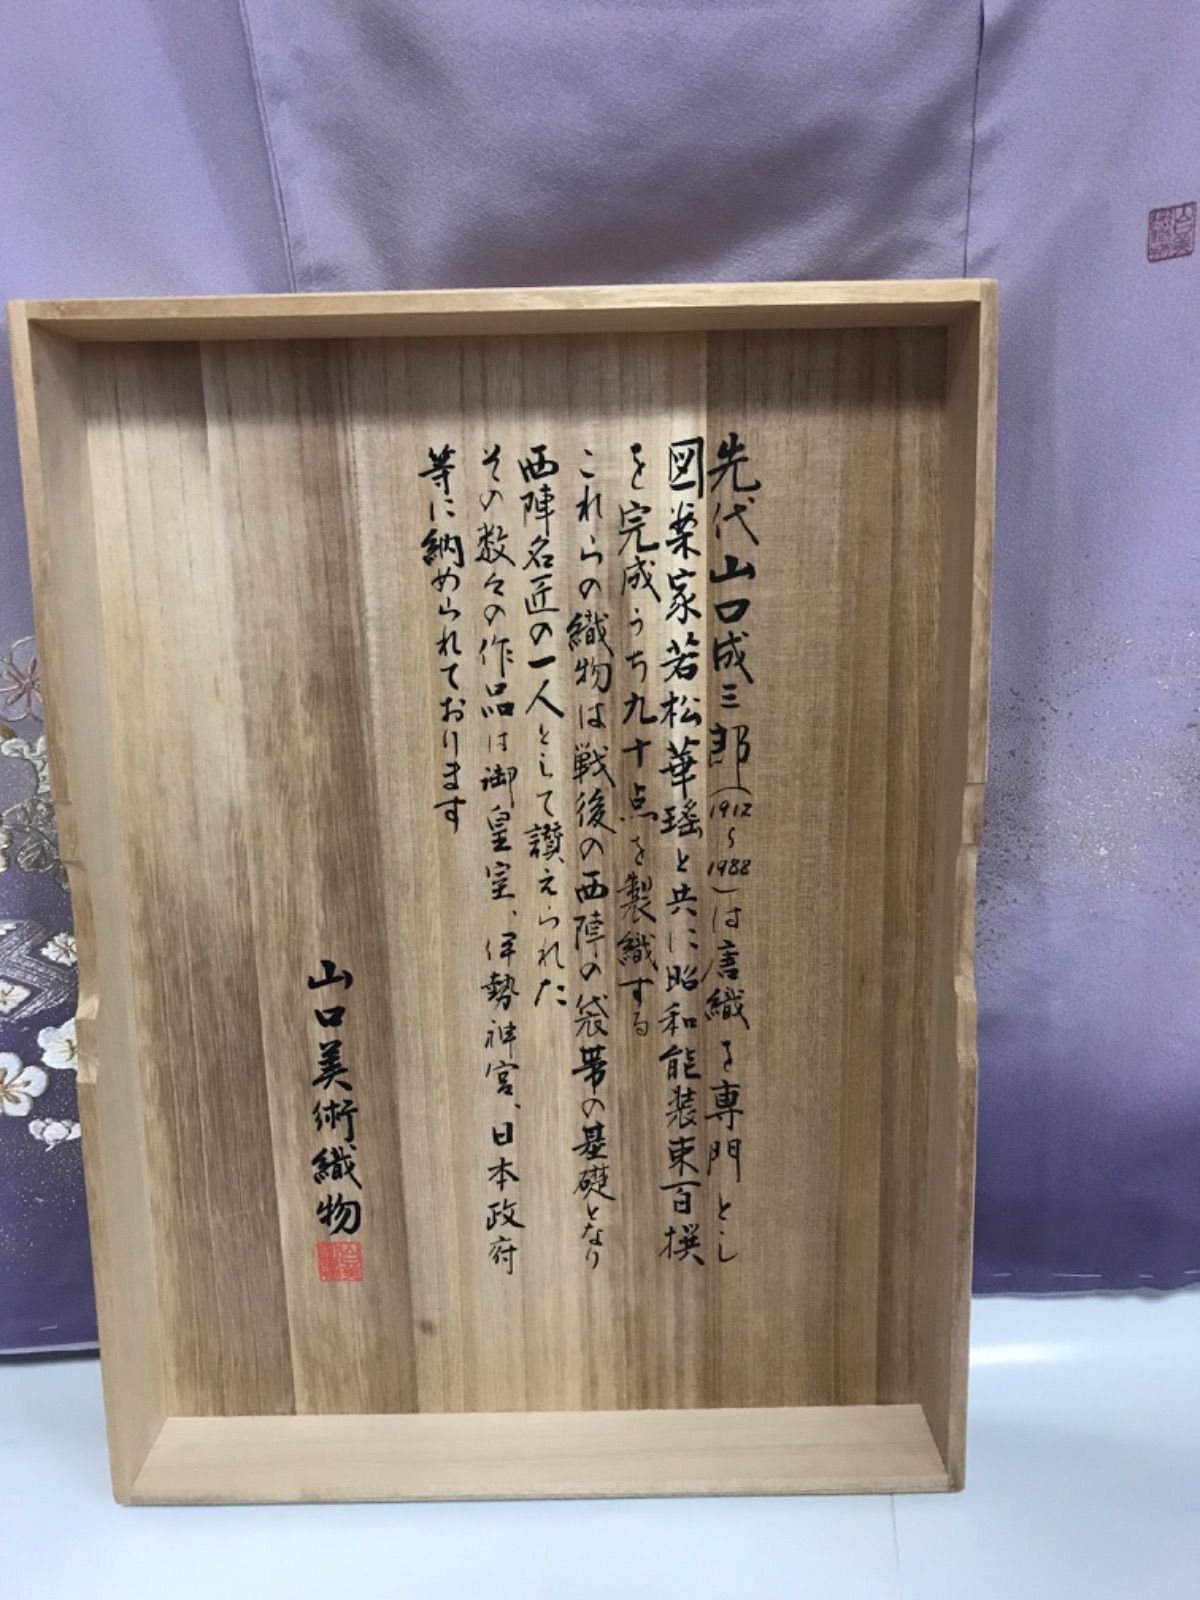 先代山口成三郎(1912~1988)は唐織を専門とし
図案家若松華瑶と共に昭和能装束百撰
を完成うち九十点を製織する
これらの織物は戦後の西陣の袋帯の基礎となり
西陣名匠の一人として讃えられた
その数々の作品は御皇室、伊勢神宮、日本政府
等に納められております
山口美術織物